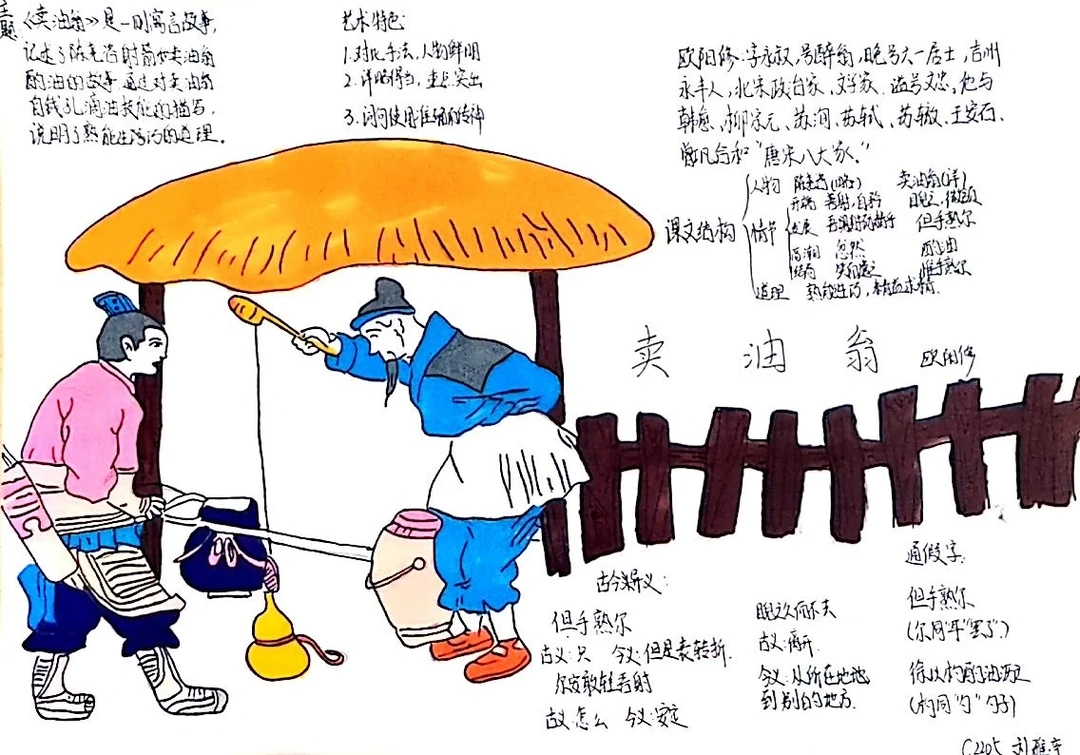 主题
《卖油翁》是一则寓言故事,
记述了陈尧咨射箭和卖油翁
酌油的故事.通过对卖油翁
自钱孔滴油技能的描写,
说明了熟能生巧的道理。
艺术特色:
1.对比手法,人物鲜明
2.详略得当,重点突出
3.词句使用准确而传神
欧阳修:字永叔,号醉翁,晚号六一居士,吉州
永丰人,北宋政治家、文学家.谥号文忠,他与
韩愈、柳宗元、苏洵、苏轼、苏辙、王安石、
曾巩合称“唐宋八大家。”
课文结构
人物 陈尧咨 卖油翁(详)
情节
开端 善射,自矜
发展 但手熟尔
高潮 忿然 酌油
结局 惟手熟尔
道理 熟能生巧,精益求精.
卖油翁 欧阳修
古今异义:
但手熟尔
古义:只 今义:但是表转折.
尔安敢轻吾射
古义:怎么 今义:安定
睨之久而不去
古义:离开
今义:从所在地
到别的地方.
通假字:
但手熟尔
(尔同“耳”“罢了”)
徐以杓酌油沥之
(杓同“勺”勺子)
C2205